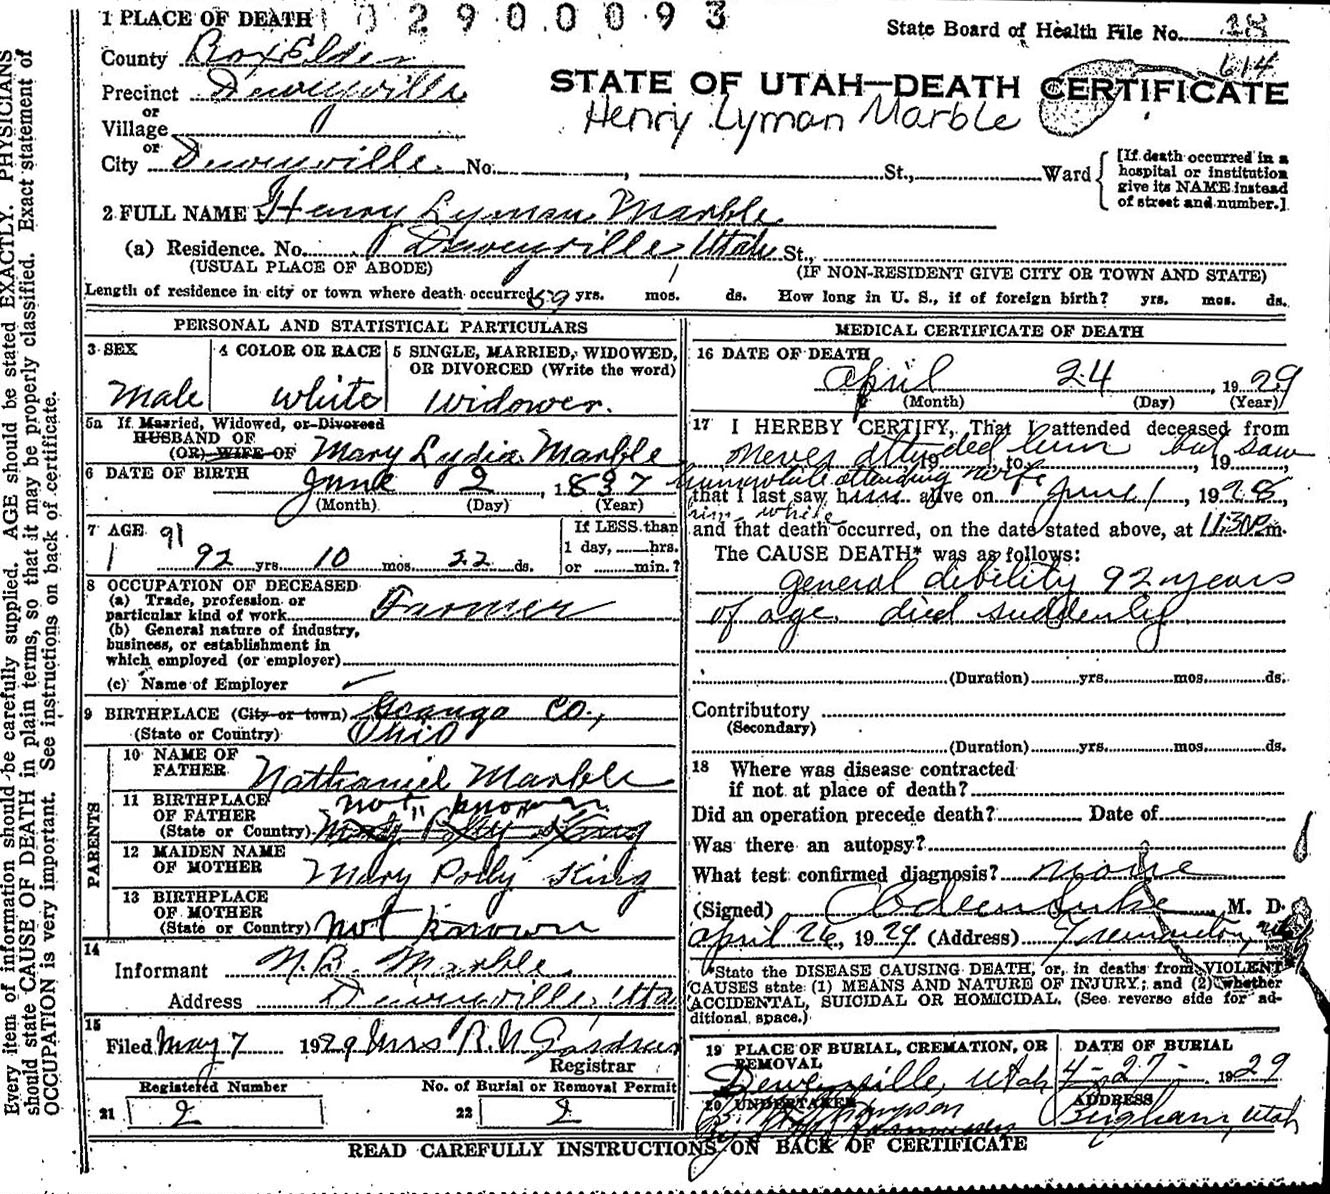 1 PLACE OF DEATH 0 2 9 0 0 0 9 3
State Board of Health File No. 24
614
County Box Elder
STATE OF UTAH—DEATH CERTIFICATE
Precinct Deweyville
Henry Lyman Marble
or
Village
or
City Deweyville No. , St., Ward
[If death occurred in a
hospital or institution
give its NAME instead
of street and number.]
2 FULL NAME Henry Lyman Marble
(a) Residence. No. Deweyville, Utah St.,
(USUAL PLACE OF ABODE) (IF NON-RESIDENT GIVE CITY OR TOWN AND STATE)
Length of residence in city or town where death occurred 59 yrs. mos. ds. How long in U. S., if of foreign birth? yrs. mos. ds.
PERSONAL AND STATISTICAL PARTICULARS
3 SEX
Male
4 COLOR OR RACE
white
5 SINGLE, MARRIED, WIDOWED,
OR DIVORCED (Write the word)
widower.
5a If Married, Widowed, or Divorced
HUSBAND OF
(OR) WIFE OF Mary Lydia Marble
6 DATE OF BIRTH June 2, 1837
(Month) (Day) (Year)
7 AGE 91
92 yrs. 10 mos. 22 ds.
If LESS than
1 day, hrs.
or min.?
8 OCCUPATION OF DECEASED
(a) Trade, profession or
particular kind of work Farmer
(b) General nature of industry,
business, or establishment in
which employed (or employer)
(c) Name of Employer
9 BIRTHPLACE (City or town) Geauga Co.,
(State or Country) Ohio
PARENTS
10 NAME OF
FATHER Nathaniel Marble
11 BIRTHPLACE
OF FATHER not known
(State or Country) Mary Polly King
12 MAIDEN NAME
OF MOTHER Mary Polly King
13 BIRTHPLACE
OF MOTHER
(State or Country) not known
14
Informant N.B. Marble
Address Deweyville, Utah
15
Filed May 7 1929 Mrs R. N. Gardner
Registrar
Registered Number No. of Burial or Removal Permit
21 2 22 2
MEDICAL CERTIFICATE OF DEATH
16 DATE OF DEATH
April 24, 1929
(Month) (Day) (Year)
17 I HEREBY CERTIFY, That I attended deceased from
never attended him but saw
, 19 to , 19 ,
him while attending wife
that I last saw h alive on June 1, 1928,
him while
and that death occurred, on the date stated above, at 11:30 P m.
The CAUSE DEATH* was as follows:
general dibility 92 years
of age died suddenly
(Duration) yrs. mos. ds.
Contributory
(Secondary)
(Duration) yrs. mos. ds.
18 Where was disease contracted
if not at place of death?
Did an operation precede death? Date of
Was there an autopsy?
What test confirmed diagnosis? none
(Signed) M. D.
April 26, 1929 (Address) Tremonton,
*State the DISEASE CAUSING DEATH, or, in deaths from VIOLENT
CAUSES state (1) MEANS AND NATURE OF INJURY; and (2) whether
ACCIDENTAL, SUICIDAL OR HOMICIDAL. (See reverse side for ad-
ditional space.)
19 PLACE OF BURIAL, CREMATION, OR
REMOVAL
Deweyville, Utah
DATE OF BURIAL
4-27- 1929
20 UNDERTAKER
ADDRESS
Brigham, Utah
READ CAREFULLY INSTRUCTIONS ON BACK OF CERTIFICATE
Every item of information should be carefully supplied. AGE should be stated EXACTLY. PHYSICIANS
should state CAUSE OF DEATH in plain terms, so that it may be properly classified. Exact statement of
OCCUPATION is very important. See instructions on back of certificate.